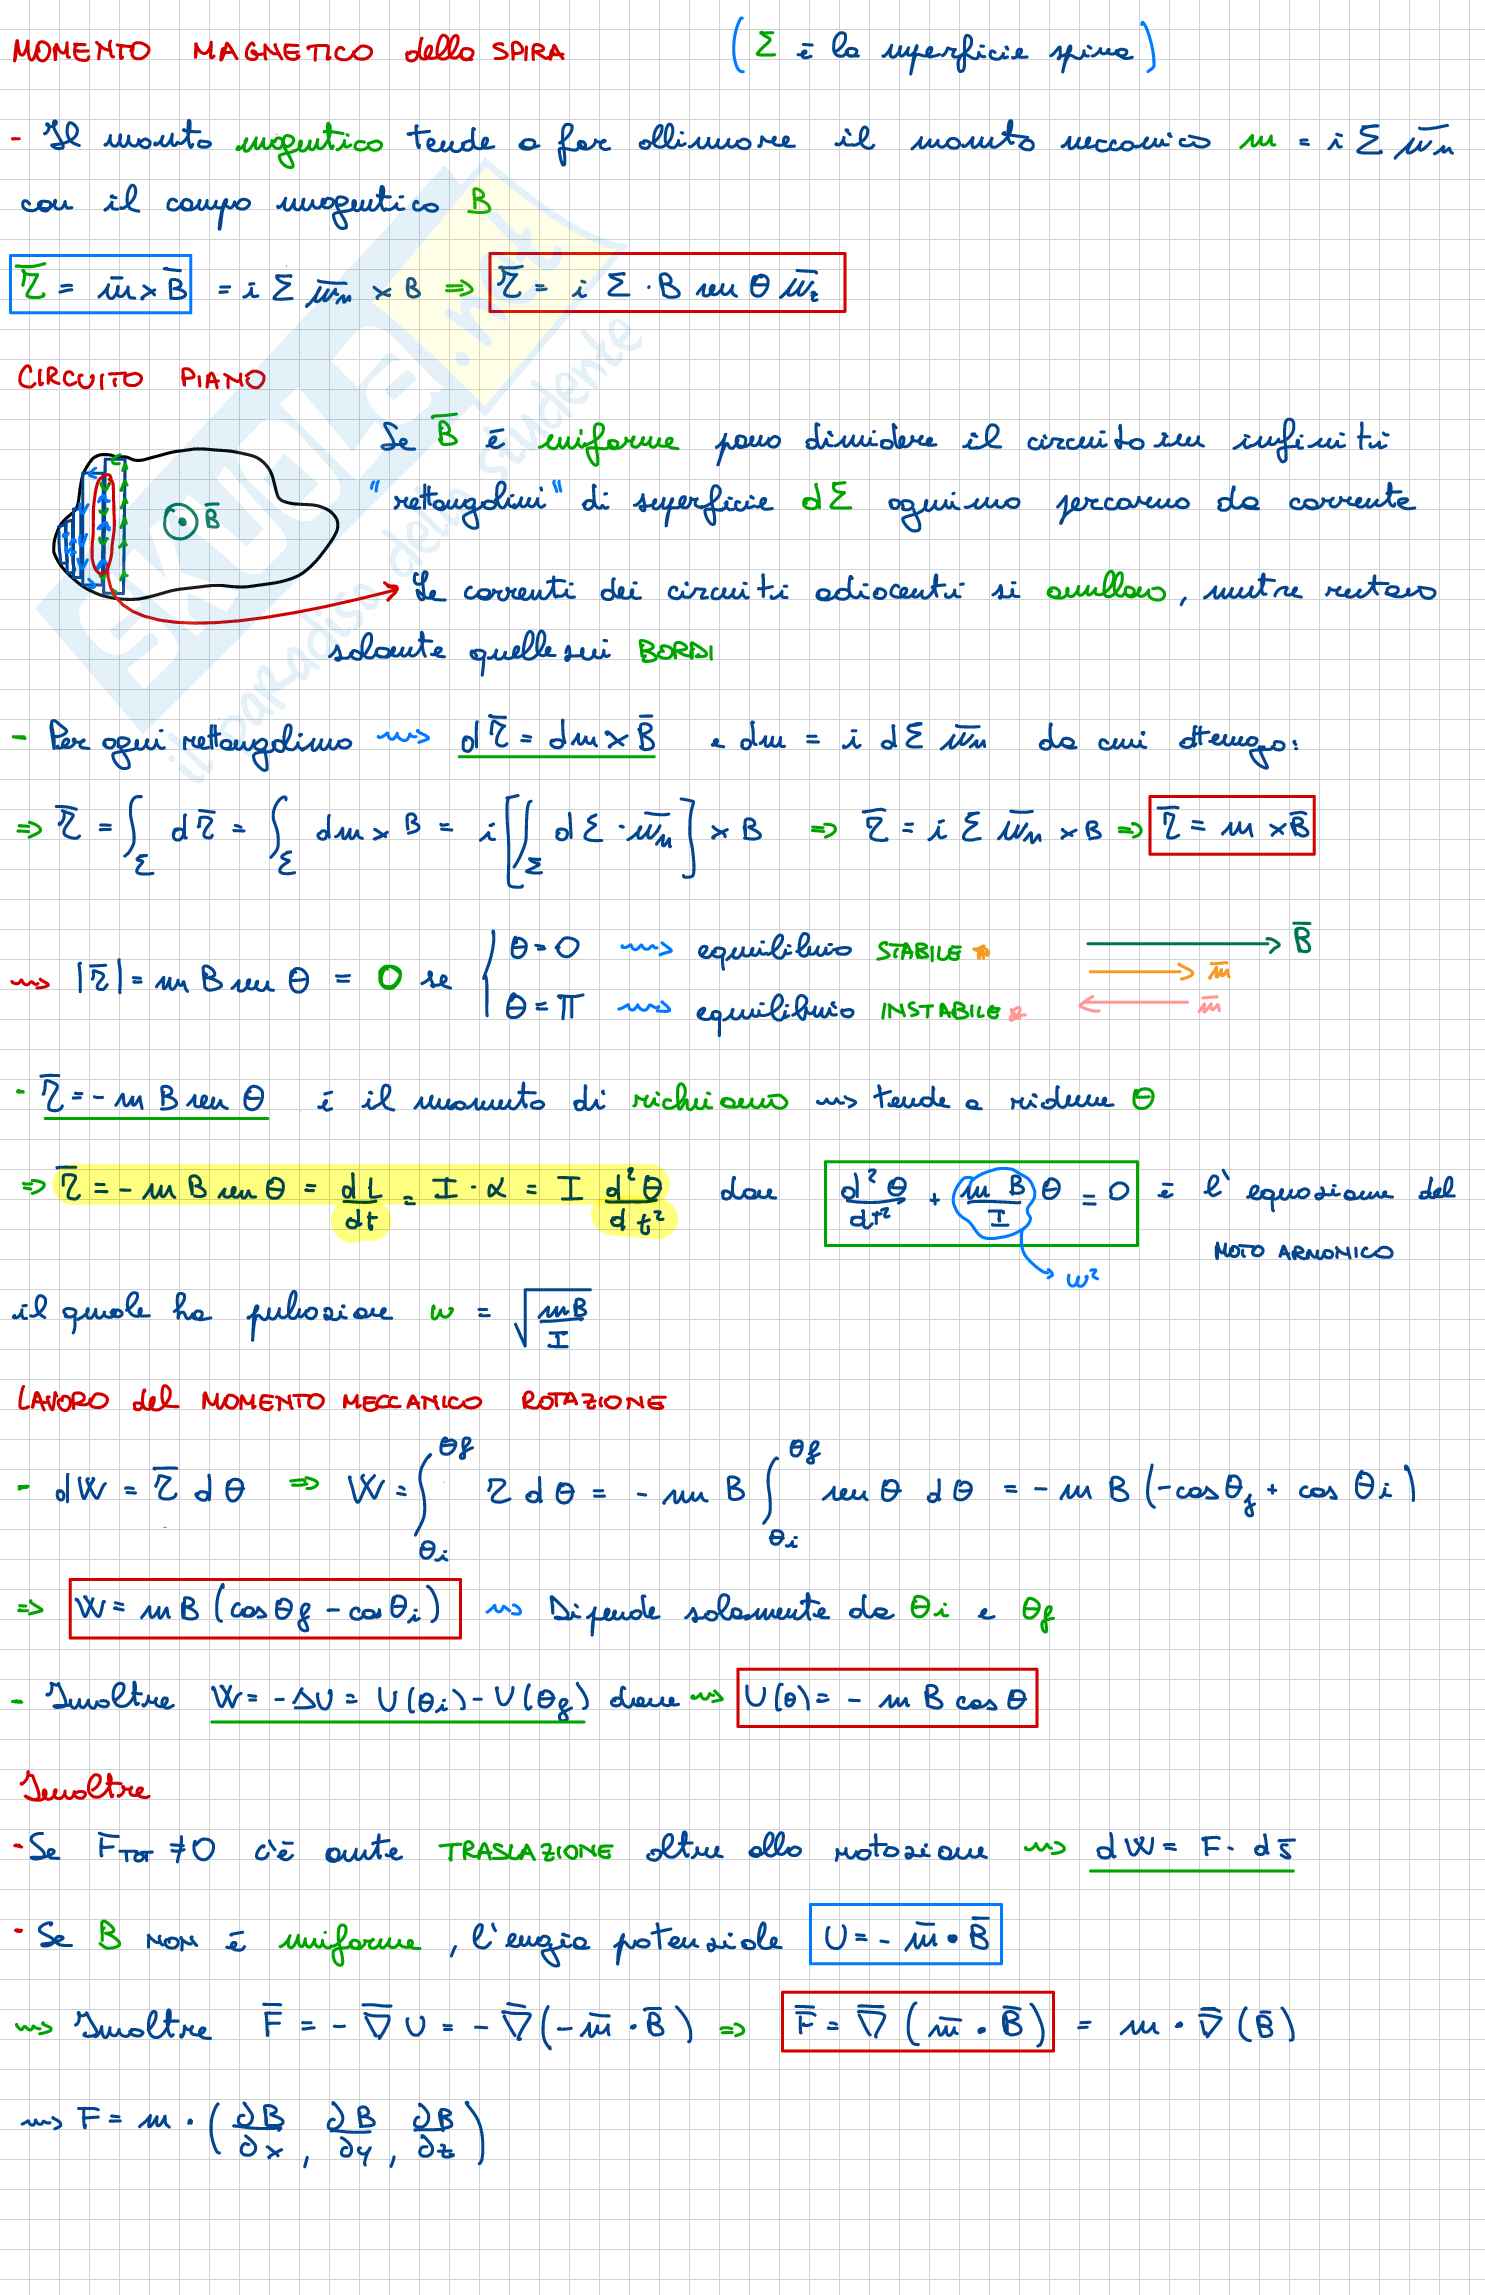 MOMENTO MAGNETICO della SPIRA (Σ è la superficie spira)
- Il momento magnetico tende a far allineare il momento meccanico m = i Σ u̅ₙ
con il campo magnetico B
τ̅ = m̅ × B̅ = i Σ u̅ₙ × B ⇒ τ̅ = i Σ · B sen θ u̅ₜ
CIRCUITO PIANO
Se B̅ è uniforme posso dividere il circuito in infiniti
"rettangolini" di superficie dΣ ognuno percorso da corrente
B̅
Le correnti dei circuiti adiacenti si annullano, mentre restano
soltante quelle sui BORDI
- Per ogni rettangolino ⇝ dτ̅ = dm × B̅ e dm = i dΣ u̅ₙ da cui ottengo:
⇒ τ̅ = ∫_Σ dτ̅ = ∫_Σ dm × B = i [∬_Σ dΣ · u̅ₙ] × B ⇒ τ̅ = i Σ u̅ₙ × B ⇒ τ̅ = m × B̅
⇝ |τ̅| = m B sen θ = 0 se
θ = 0 ⇝ equilibrio STABILE
θ = π ⇝ equilibrio INSTABILE
B̅
m̅
m̅
- τ̅ = - m B sen θ è il momento di richiamo ⇝ tende a ridurre θ
⇒ τ̅ = - m B sen θ = dL/dt = I · α = I d²θ/dt² dove d²θ/dt² + (m B/I) θ = 0 è l'equazione del
MOTO ARMONICO
ω²
il quale ha pulsazione ω = √(mB/I)
LAVORO del MOMENTO MECCANICO ROTAZIONE
- dW = τ̅ dθ ⇒ W = ∫_θi^θf τ dθ = - m B ∫_θi^θf sen θ dθ = - m B (-cos θf + cos θi)
⇒ W = m B (cos θf - cos θi) ⇝ Dipende solamente da θi e θf
- Inoltre W = -ΔU = U(θi) - U(θf) dove ⇝ U(θ) = - m B cos θ
Inoltre
- Se F̅_TOT ≠ 0 c'è ante TRASLAZIONE oltre alla rotazione ⇝ dW = F · ds̅
- Se B NON è uniforme, l'engia potenziale U = - m̅ • B̅
⇝ Inoltre F̅ = - ∇̅ U = - ∇̅ (-m̅ · B̅) ⇒ F̅ = ∇̅ (m̅ • B̅) = m · ∇̅ (B̅)
⇝ F = m · (∂B/∂x, ∂B/∂y, ∂B/∂z)
SKUOLA.net
il paradiso dello studente